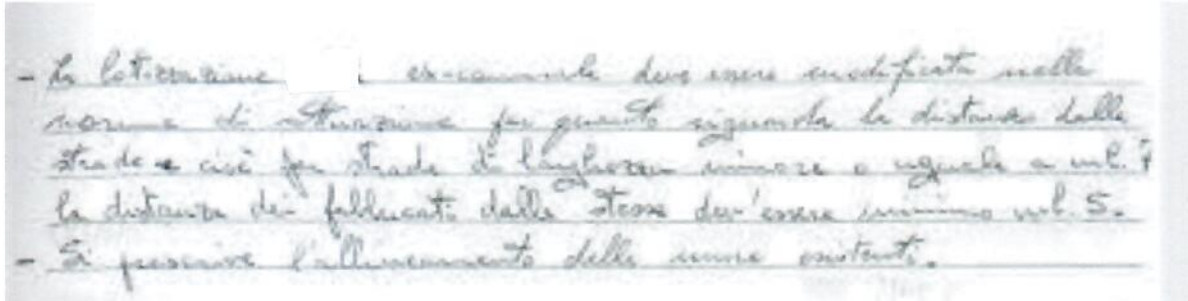 - La lottizzazione ex-comunale deve essere modificata nelle
norme di attuazione per quanto riguarda la distanza dalle
strade e cioè per strade di larghezza minore o uguale a ml. 7
la distanza dei fabbricati dalle stesse dev'essere minimo ml. 5.
- Si prescrive l'allineamento delle mura esistenti.